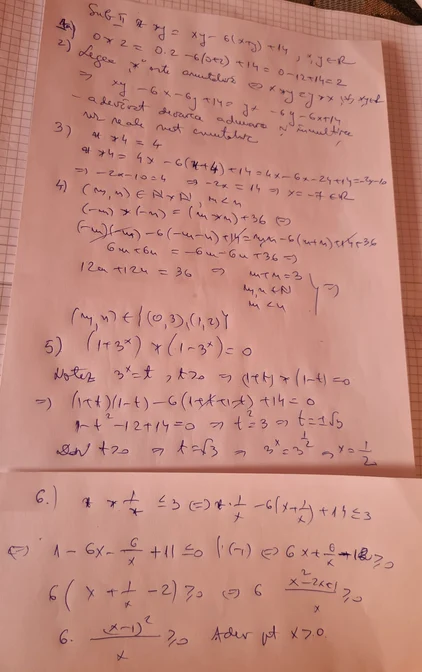 Sub. II x * y = xy - 6(x+y) + 14, x, y ∈ R
1) 0 * 2 = 0·2 - 6(0+2) + 14 = 0 - 12 + 14 = 2
2) Legea "*" este comutativă ⇔ x * y = y * x, (∀) x, y ∈ R
⇒ xy - 6x - 6y + 14 = yx - 6y - 6x + 14
- adevărat deoarece adunarea și înmulțirea
nr reale sunt comutative
3) x * 4 = 4
x * 4 = 4x - 6(x+4) + 14 = 4x - 6x - 24 + 14 = -2x - 10
⇒ -2x - 10 = 4 ⇒ -2x = 14 ⇒ x = -7 ∈ R
4) (m, n) ∈ N × N, m < n
(-m) * (-n) = (m * n) + 36 ⇔
(-m)(-n) - 6(-m-n) + 14 = m·n - 6(m+n) + 14 + 36
6m + 6n = -6m - 6n + 36 ⇒
12m + 12n = 36 ⇒ m + n = 3
m, n ∈ N
m < n } ⇒
(m, n) ∈ {(0,3), (1,2)}
5) (1+3^x) * (1-3^x) = 0
Notez 3^x = t, t > 0 ⇒ (1+t) * (1-t) = 0
⇒ (1+t)(1-t) - 6(1+t+1-t) + 14 = 0
1 - t² - 12 + 14 = 0 ⇒ t² = 3 ⇒ t = ±√3
Dar t > 0 ⇒ t = √3 ⇒ 3^x = 3^(1/2) ⇒ x = 1/2
6.) x * 1/x ≤ 3 ⇔ x · 1/x - 6(x + 1/x) + 14 ≤ 3
⇔ 1 - 6x - 6/x + 11 ≤ 0 |·(-1) ⇔ 6x + 6/x - 12 ≥ 0
6(x + 1/x - 2) ≥ 0 ⇔ 6 (x² - 2x + 1)/x ≥ 0
6. (x-1)²/x ≥ 0 Adev pt x > 0.